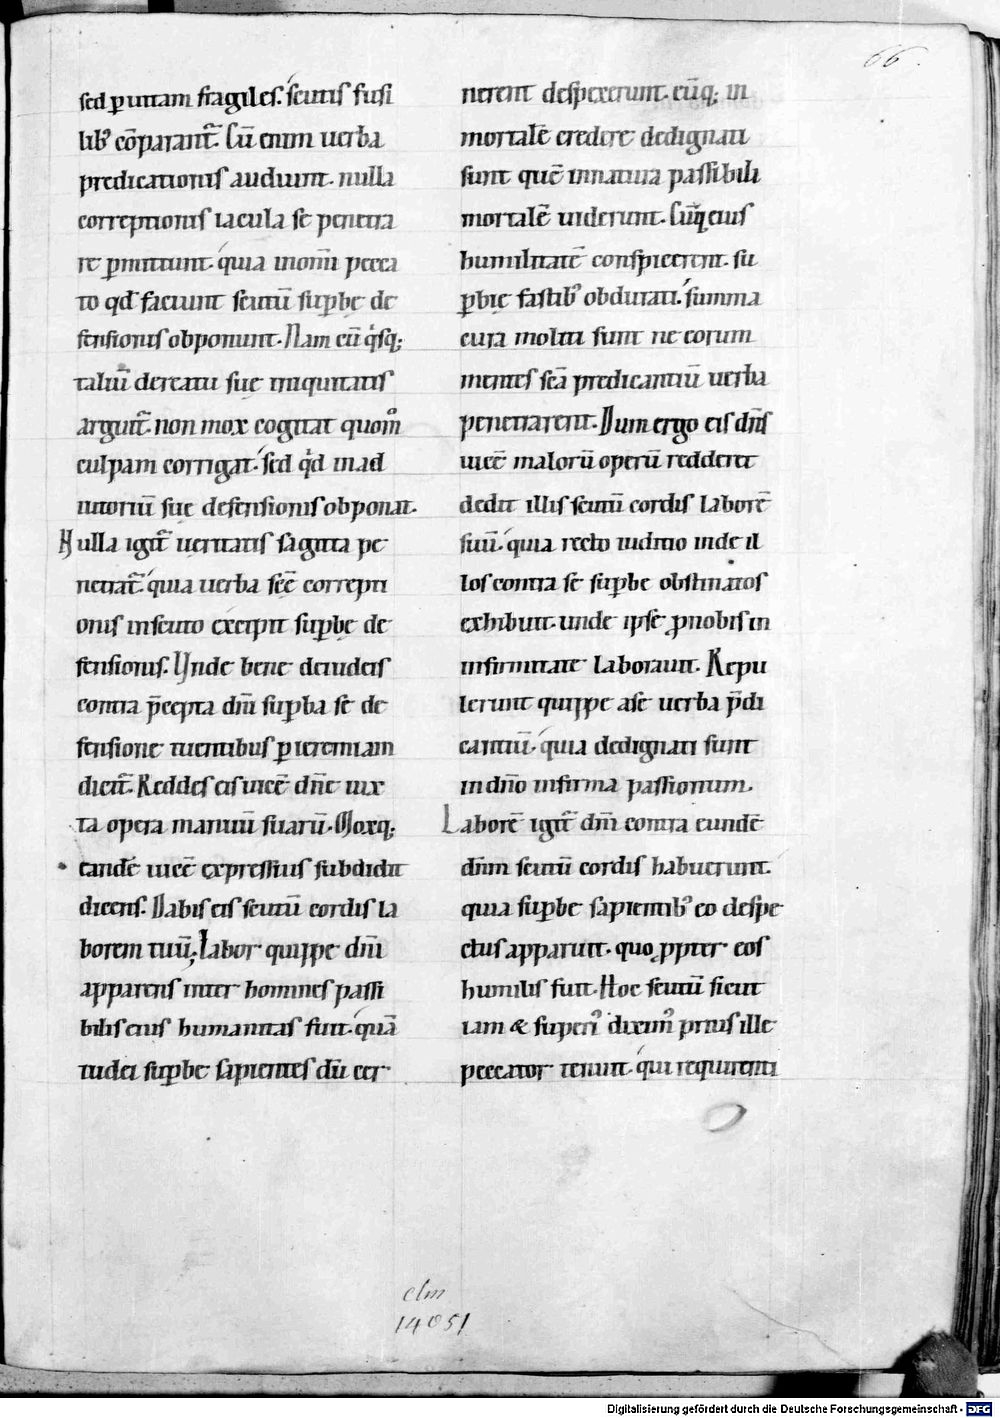 66.
sed ꝑ uitam fragiles. scutis fusi
lib᷒ cōparant᷑. Cū enim uerba
predicationis audiunt. nulla
correptionis iacula se penetra
re ꝑmittunt. quia in om̄i pecca
to qd̄ faciunt scutū suꝑbę de
fensionis obponunt. Nam cū q̇sq;
taliū de reatu suę iniquitatis
arguit᷑. non mox cogitat quom̊
culpam corrigat. sed q̇d in ad
iutoriū suę defensionis obponat.
Nulla igit᷑ ueritatis sagitta pe
netrat᷑. quia uerba scē correpti
onis in scuto excipit suꝑbę de
fensionis. Unde bene de iudeis
contra p̄cepta dn̄i suꝑba se de
fensione tuentibus ꝑ ieremiam
dicit᷑. Reddes eis uicē dn̄e iux
ta opera manuū suarū. Moxq;
eandē uicē expressius subdidit
dicens. Dabis eis scutū cordis la
borem tuū; Labor quippe dn̄i
apparens inter homines passi
bilis eius humanitas fuit. quā
iudei suꝑbe sapientes dū cer
nerent despexerunt. eūq; in
mortalē credere dedignati
sunt quē in natura passibili
mortalē uiderunt. Cūq; eius
humilitatē conspicerent. su
ꝑbię fastib᷒ obdurati. summa
cura moliti sunt ne eorum
mentes scā predicantiū uerba
penetrarent. Dum ergo eis dn̄s
uicē malorū operū redderet
dedit illis scutū cordis laborē
suū. quia recto iudicio inde il
los contra se suꝑbe obstinatos
exhibuit. unde ipse ꝓ nobis in
infirmitate laborauit. Repu
lerunt quippe a se uerba p̄di
cantiū. quia dedignati sunt
in dn̄o infirma passionum.
Laborē igit᷑ dn̄i contra eundē
dn̄m scutū cordis habuerunt.
quia suꝑbe sapientib᷒ eo despe
ctus apparuit. quo ꝓpter eos
humilis fuit. Hoc scutū sicut
iam & superi᷒ dixim᷒ prius ille
peccator tenuit. qui requirenti
clm
14051
Digitalisierung gefördert durch die Deutsche Forschungsgemeinschaft - DFG